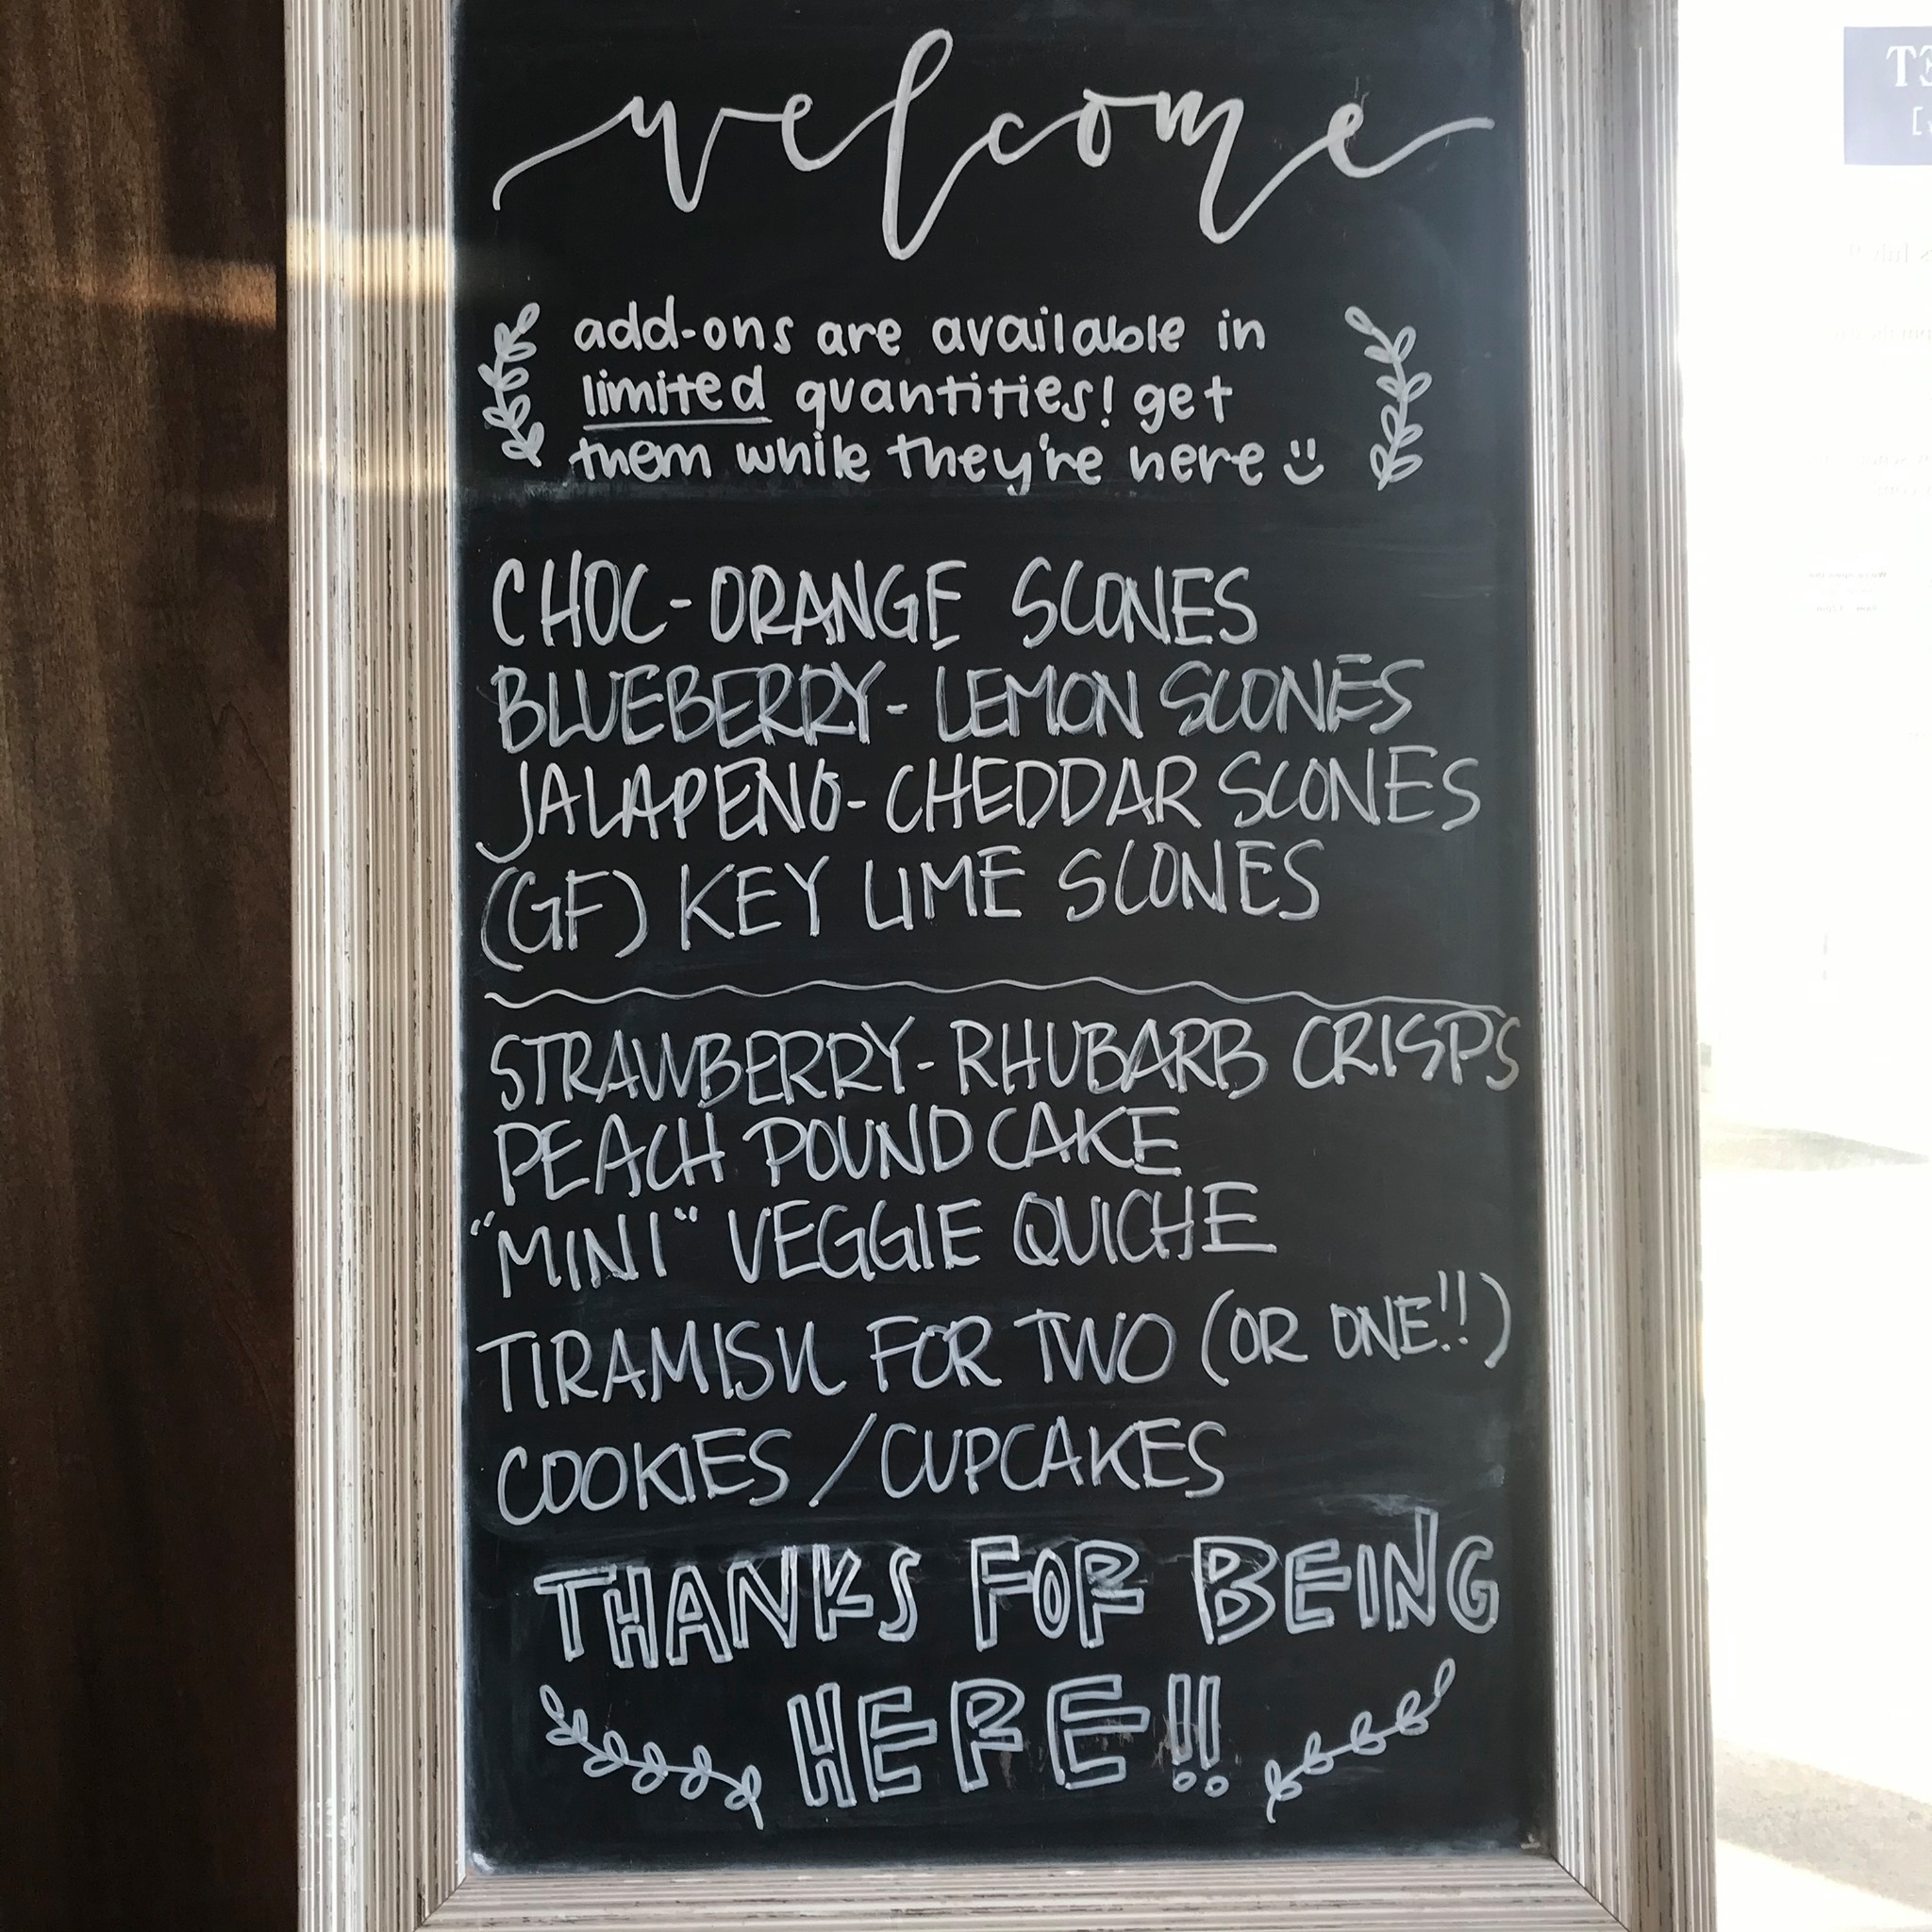 welcome
add-ons are available in
limited quantities! get
them while they're here
CHOC-ORANGE SCONES
BLUEBERRY-LEMON SCONES
JALAPENO-CHEDDAR SCONES
(GF) KEY LIME SCONES
STRAWBERRY-RHUBARB CRISPS
PEACH POUND CAKE
"MINI" VEGGIE QUICHE
TIRAMISU FOR TWO (OR ONE!!)
COOKIES / CUPCAKES
THANKS FOR BEING
HERE!!